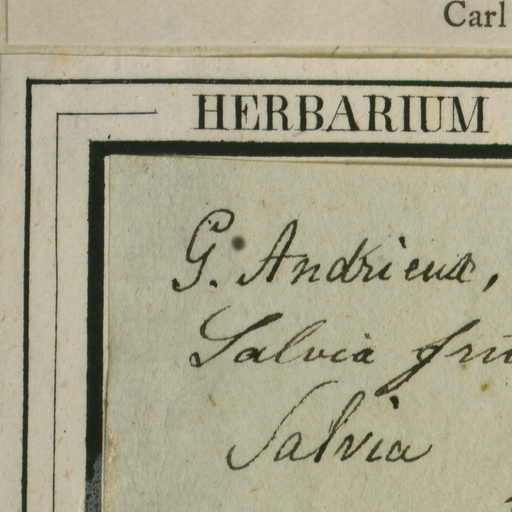 Carl
HERBARIUM
G. Andrieux,
Salvia
Salvia